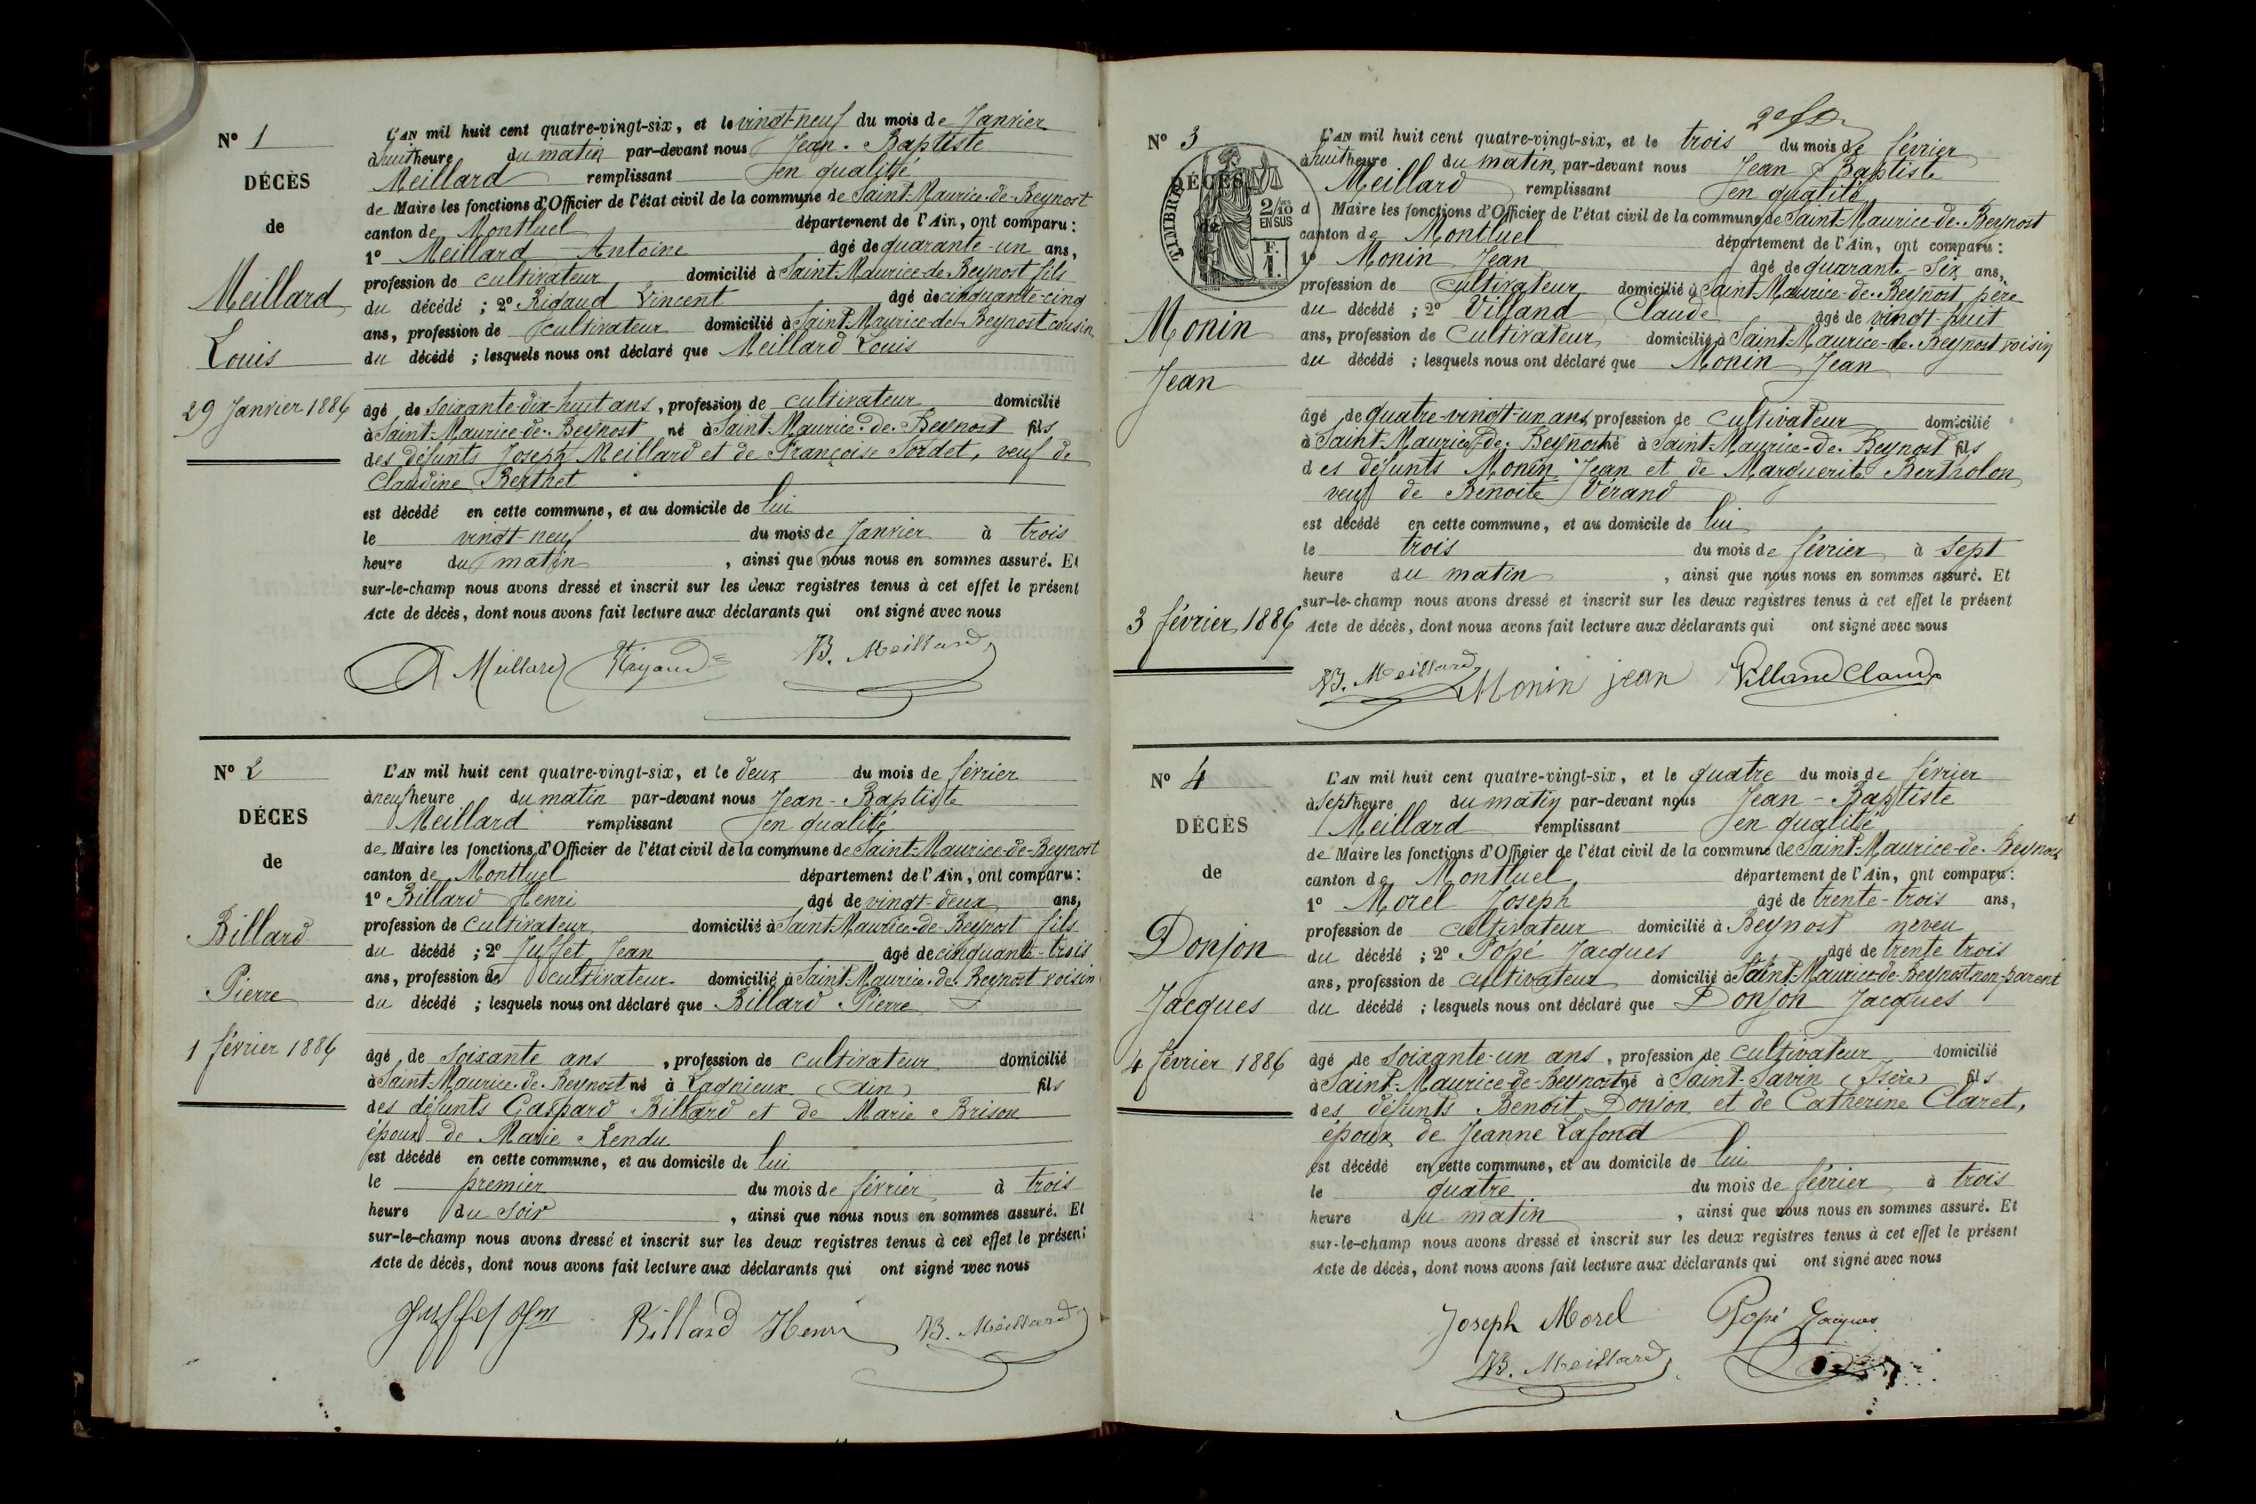 N° 1
DÉCÈS
de
Meillard
Louis
29 Janvier 1886
L'AN mil huit cent quatre-vingt-six, et le vingt-neuf du mois de Janvier
à huit heure du matin par-devant nous Jean-Baptiste
Meillard remplissant en qualité
de Maire les fonctions d'Officier de l'état civil de la commune de Saint-Maurice-de-Beynost
canton de Montluel département de l'Ain, ont comparu :
1° Meillard Antoine âgé de quarante-un ans,
profession de cultivateur domicilié à Saint-Maurice-de-Beynost fils
du décédé ; 2° Rigaud Vincent âgé de cinquante-cinq
ans, profession de cultivateur domicilié à Saint-Maurice-de-Beynost cousin
du décédé ; lesquels nous ont déclaré que Meillard Louis
âgé de soixante-dix-huit ans, profession de cultivateur domicilié
à Saint-Maurice-de-Beynost né à Saint-Maurice-de-Beynost fils
des défunts Joseph Meillard et de Françoise Tordet, veuf de
Claudine Berthet
est décédé en cette commune, et au domicile de lui
le vingt-neuf du mois de Janvier à trois
heure du matin, ainsi que nous nous en sommes assuré. Et
sur-le-champ nous avons dressé et inscrit sur les deux registres tenus à cet effet le présent
Acte de décès, dont nous avons fait lecture aux déclarants qui ont signé avec nous
A Meillard Rigaud JB. Meillard
N° 2
DÉCES
de
Billard
Pierre
1 février 1886
L'AN mil huit cent quatre-vingt-six, et le deux du mois de février
à neuf heure du matin par-devant nous Jean-Baptiste
Meillard remplissant en qualité
de Maire les fonctions d'Officier de l'état civil de la commune de Saint-Maurice-de-Beynost
canton de Montluel département de l'Ain, ont comparu :
1° Billard Henri âgé de vingt-deux ans,
profession de cultivateur domicilié à Saint-Maurice-de-Beynost fils
du décédé ; 2° Juffet Jean âgé de cinquante-trois
ans, profession de cultivateur domicilié à Saint-Maurice-de-Beynost voisin
du décédé ; lesquels nous ont déclaré que Billard Pierre
âgé de soixante ans, profession de cultivateur domicilié
à Saint-Maurice-de-Beynost né à Lagnieux (Ain) fils
des défunts Gaspard Billard et de Marie Brison
époux de Marie Rendu
est décédé en cette commune, et au domicile de lui
le premier du mois de février à trois
heure du soir, ainsi que nous nous en sommes assuré. Et
sur-le-champ nous avons dressé et inscrit sur les deux registres tenus à cet effet le présent
Acte de décès, dont nous avons fait lecture aux déclarants qui ont signé avec nous
Juffet Jean Billard Henri JB. Meillard
N° 3
TIMBRE
2/10 EN SUS
F. 1.
DÉCÈS
de
Monin
Jean
3 février 1886
L'AN mil huit cent quatre-vingt-six, et le trois du mois de février
à huit heure du matin, par-devant nous Jean Baptiste
Meillard remplissant en qualité
d Maire les fonctions d'Officier de l'état civil de la commune de Saint-Maurice-de-Beynost
canton de Montluel département de l'Ain, ont comparu :
1° Monin Jean âgé de quarante-six ans,
profession de cultivateur domicilié à Saint-Maurice-de-Beynost père
du décédé ; 2° Villand Claude âgé de vingt-huit
ans, profession de cultivateur domicilié à Saint-Maurice-de-Beynost voisin
du décédé ; lesquels nous ont déclaré que Monin Jean
âgé de quatre-vingt-un ans, profession de cultivateur domicilié
à Saint-Maurice-de-Beynost né à Saint-Maurice-de-Beynost fils
des défunts Monin Jean et de Marguerite Bertholon
veuf de Benoite Vérand
est décédé en cette commune, et au domicile de lui
le trois du mois de février à sept
heure du matin, ainsi que nous nous en sommes assuré. Et
sur-le-champ nous avons dressé et inscrit sur les deux registres tenus à cet effet le présent
Acte de décès, dont nous avons fait lecture aux déclarants qui ont signé avec nous
JB. Meillard Monin jean Villand Claude
N° 4
DÉCÈS
de
Donjon
Jacques
4 février 1886
L'AN mil huit cent quatre-vingt-six, et le quatre du mois de février
à sept heure du matin par-devant nous Jean-Baptiste
Meillard remplissant en qualité
de Maire les fonctions d'Officier de l'état civil de la commune de Saint-Maurice-de-Beynost
canton de Montluel département de l'Ain, ont comparu :
1° Morel Joseph âgé de trente-trois ans,
profession de cultivateur domicilié à Beynost neveu
du décédé ; 2° Popé Jacques âgé de trente trois
ans, profession de cultivateur domicilié à Saint-Maurice-de-Beynost non-parent
du décédé ; lesquels nous ont déclaré que Donjon Jacques
âgé de soixante-un ans, profession de cultivateur domicilié
à Saint-Maurice-de-Beynost né à Saint-Savin (Isère) fils
des défunts Benoit Donjon et de Catherine Claret,
époux de Jeanne Lafond
est décédé en cette commune, et au domicile de lui
le quatre du mois de février à trois
heure du matin, ainsi que nous nous en sommes assuré. Et
sur-le-champ nous avons dressé et inscrit sur les deux registres tenus à cet effet le présent
Acte de décès, dont nous avons fait lecture aux déclarants qui ont signé avec nous
Joseph Morel Popé Jacques
JB. Meillard